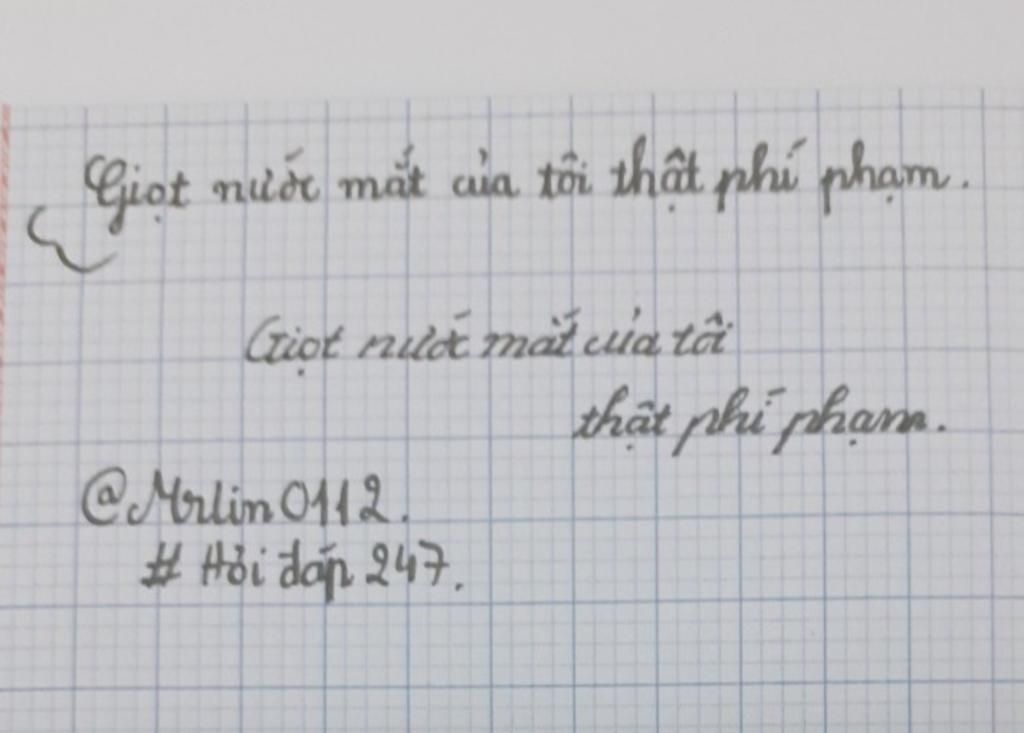 Giọt nước mắt của tôi thật phí phạm.
Giọt nước mắt của tôi
thật phí phạm.
@Mrlin0112.
# Hỏi đáp 247.